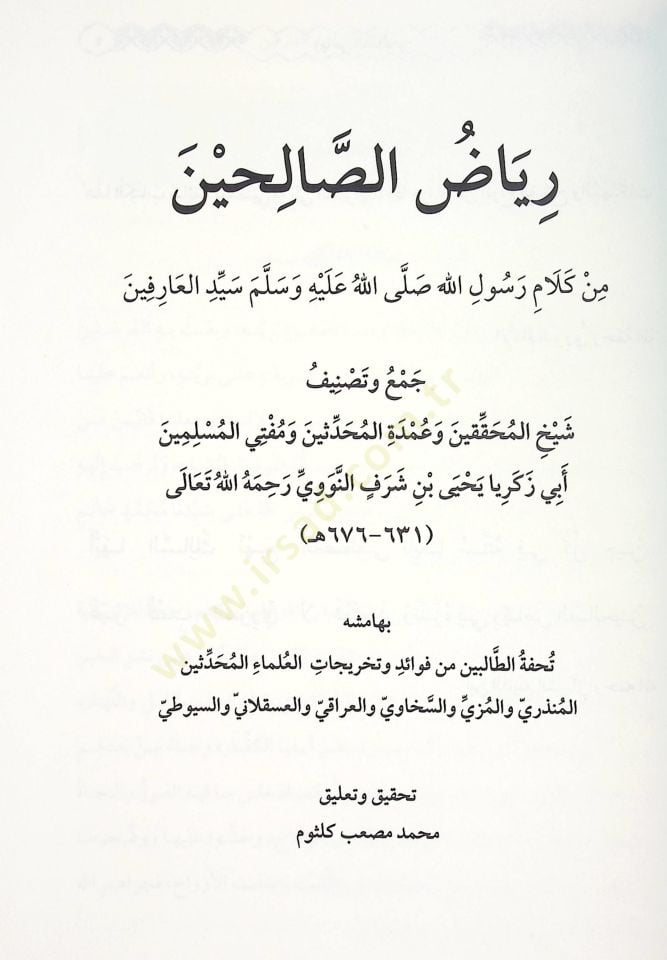 رِيَاضُ الصَّالِحيْنَ
مِنْ كَلَامِ رَسُولِ اللهِ صَلَّى اللهُ عَلَيْهِ وَسَلَّمَ سَيِّدِ العَارِفِينَ
جَمْعُ وتَصْنِيفُ
شَيْخِ المُحَقِّقينَ وَعُمْدَةِ المُحَدِّثينَ وَمُفْتِي المُسْلِمِينَ
أَبِي زَكَرِيا يَحْيَى بْنِ شَرَفٍ النَّوَوِيِّ رَحِمَهُ اللهُ تَعَالَى
(٦٣١-٦٧٦هـ)
بهامشه
تُحفةُ الطَّالبين من فوائدِ وتخريجاتِ العُلماءِ المُحَدِّثين
المُنذريّ والمُزيِّ والسَّخاويّ والعراقيّ والعسقلانيّ والسيوطيّ
تحقيق وتعليق
محمد مصعب كلثوم
www.irsad.com.tr